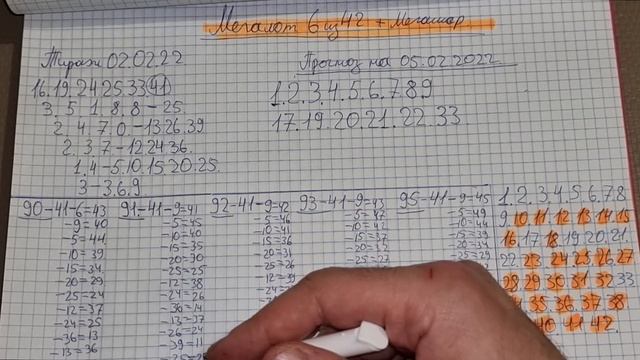 Мегалот 6 из 42 + Мегашар
Тираж 02.02.22
16.19.24.25.33.41
3. 5. 1. 8. 8 - 25.
2. 4. 7. 0. - 13.26.39
2. 3. 7 - 12.24.36.
1. 4 - 5.10.15.20.25.
3 - 3.6.9
Прогноз на 05.02.2022
1.2.3.4.5.6.7.8.9
17.19.20.21.22.33.
90-41-6=43
-9=40
-5=44
-10=39
-15=34
-20=29
-25=24
-12=37
-24=25
-36=13
-13=36
91-41-9=41
-5=45
-10=40
-15=35
-20=30
-25=25
-12=38
-24=26
-36=14
-13=37
-26=24
-39=11
92-41-9=42
-5=46
-10=41
-15=36
-20=31
-25=26
93-41-9=43
-5=47
-10=42
-15=37
-20=32
-25=27
95-41-9=45
-5=49
-10=44
-15=39
-20=34
-25=29
1. 2. 3. 4. 5. 6. 7. 8
9 10 11 12 13 14 15
16 17 18 19. 20. 21.
22 23 24 25 26 27
28 29 30 31 32 33
35 36 37 38
40 41 42.